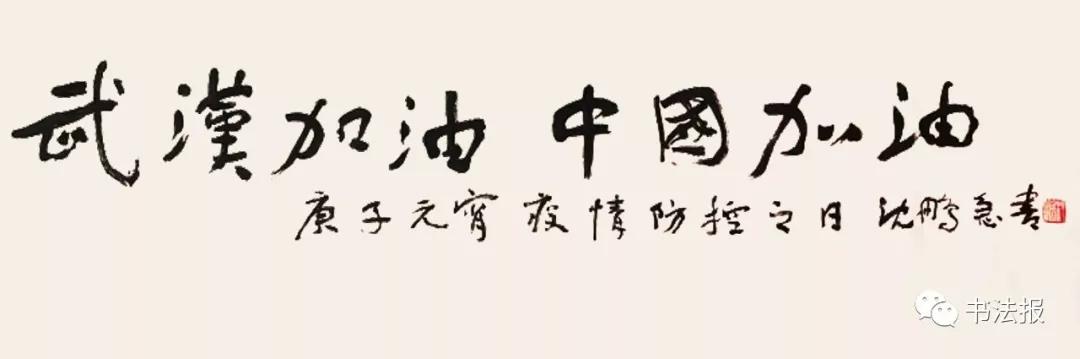 武漢加油 中國加油
庚子元宵 疫情防控之日 沈鹏急書
书法报